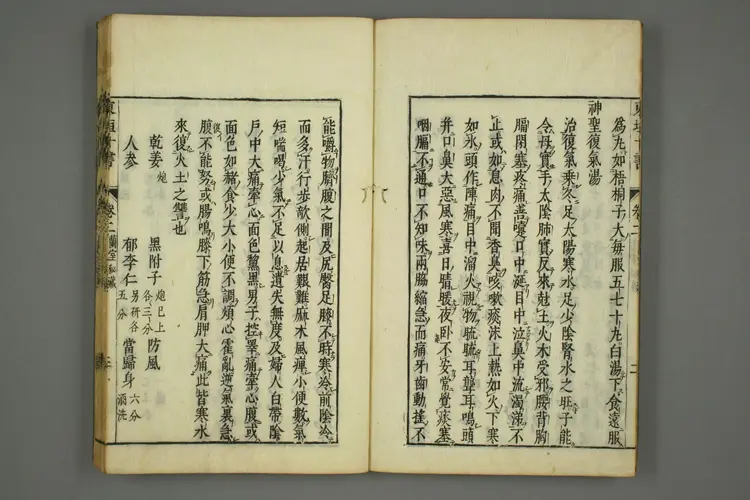 為丸如梧桐子大每服五七十丸白湯下食遠服
神聖復氣湯
治復氣乗冬足太陽寒水足少陰腎水之旺子能
令母實手太陰肺實反來尅土火木受邪腰背胸
膈閉塞疼痛善嚏口中涎目中泣鼻中流濁涕不
止或如息肉不聞香臭咳嗽痰沫上熱如火下寒
如氷頭作陣痛目中溜火視物𥆨𥆨耳聾耳鳴頭
并口鼻大惡風寒喜日晴暖夜卧不安常覺痰塞
咽膈不通口不知味兩脇縮急而痛牙齒動搖不
能嚼物臍腹之間及尻臀足膝不時寒冷前陰冷
而多汗行步欹側起居艱難麻木風痺小便數氣
短喘喝少氣不足以息遺失無度及婦人白帶陰
戶中大痛牽心面色黧黑男子控睾痛牽心腹或
面色如赭食少大小便不調煩心霍亂逆氣裏急
腹不能努或腸鳴膝下筋急肩胛大痛此皆寒水
來復火土之讐也
乾姜炮 黑附子炮已上各三分 防風
人參 郁李仁五分另研各 當歸身六分酒洗
東垣十書 卷二